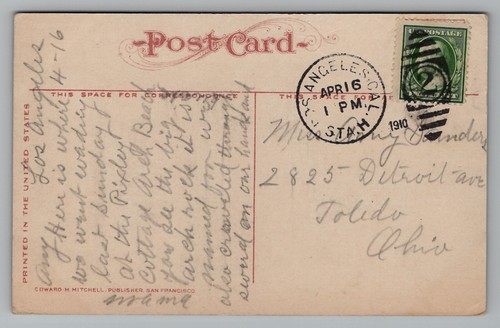 Post Card
THIS SPACE FOR CORRESPONDENCE
THIS SPACE FOR
PRINTED IN THE UNITED STATES
EDWARD H. MITCHELL, PUBLISHER, SAN FRANCISCO
LOS ANGELES, CAL.
APR 16
1 PM
STA. H
1910
U.S. POSTAGE
2
Los Angeles
4-16
Amy Here is where
we went wading
last Sunday
at the Pixley
Cottage Arch Beach
you see the big
arch rock it is
around we
also crawled through
several on our hands and
Mama
Miss Amy
2825 Detroit ave
Toledo
Ohio